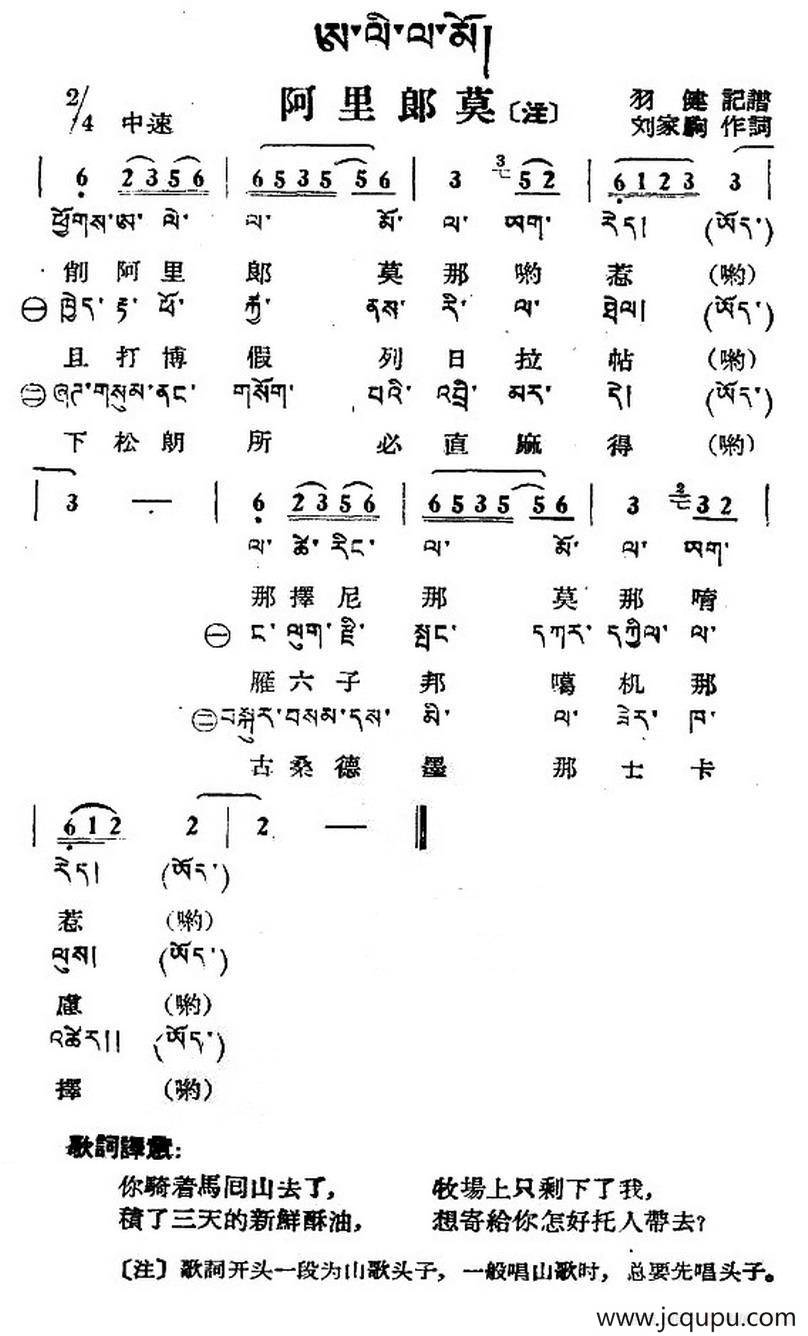 ཨ་ལི་ལ་མོ།
2/4 中速
阿里郎莫〔注〕
羽健 記譜
刘家駒 作詞
| 6 2356 | 6535 56 | 3 52 | 6123 3 |
ཕྱོགས་ཨ་ལེ་ ལ་ མོ་ ལ་ ཨག་ རེད། (ཨོད་)
削阿里 郎 莫 那 喲 惹 (喲)
㊀ ཁྱེད་རྟ་ཕོ་ རྐྱ་ ནས་ རི་ ལ་ ཐེལ། (ཨོད་)
且打博 假 列 日 拉 帖 (喲)
㊁ ཞག་གསུམ་ནང་ གསོག་ པའི་ འབྲི་ མར་ དེ། (ཨོད་)
下松朗 所 必 直 麻 得 (喲)
| 3 — | 6 2356 | 6535 56 | 3 32 |
ལ་ ཚེ་ རིང་ ལ་ མོ་ ལ་ ཨག་
那擇尼 那 莫 那 唷
㊀ ང་ ལུག་ རྫི་ སྤང་ དཀར་ དཀྱིལ་ ལ་
雁六子 邦 噶 机 那
㊁ བསྐུར་བསམ་དས་ མི་ ལ་ ཟེར་ ཁ་
古桑德 墨 那 士 卡
| 612 2 | 2 — ‖
རེད། (ཨོད་)
惹 (喲)
ལུས། (ཨོད་)
慮 (喲)
འཚེར།། (ཨོད་)
擇 (喲)
歌詞譯意：
你騎着馬囘山去了， 牧場上只剩下了我，
積了三天的新鮮酥油， 想寄給你怎好托人帶去？
〔注〕歌詞开头一段为山歌头子，一般唱山歌时，总要先唱头子。
www.jcqupu.com